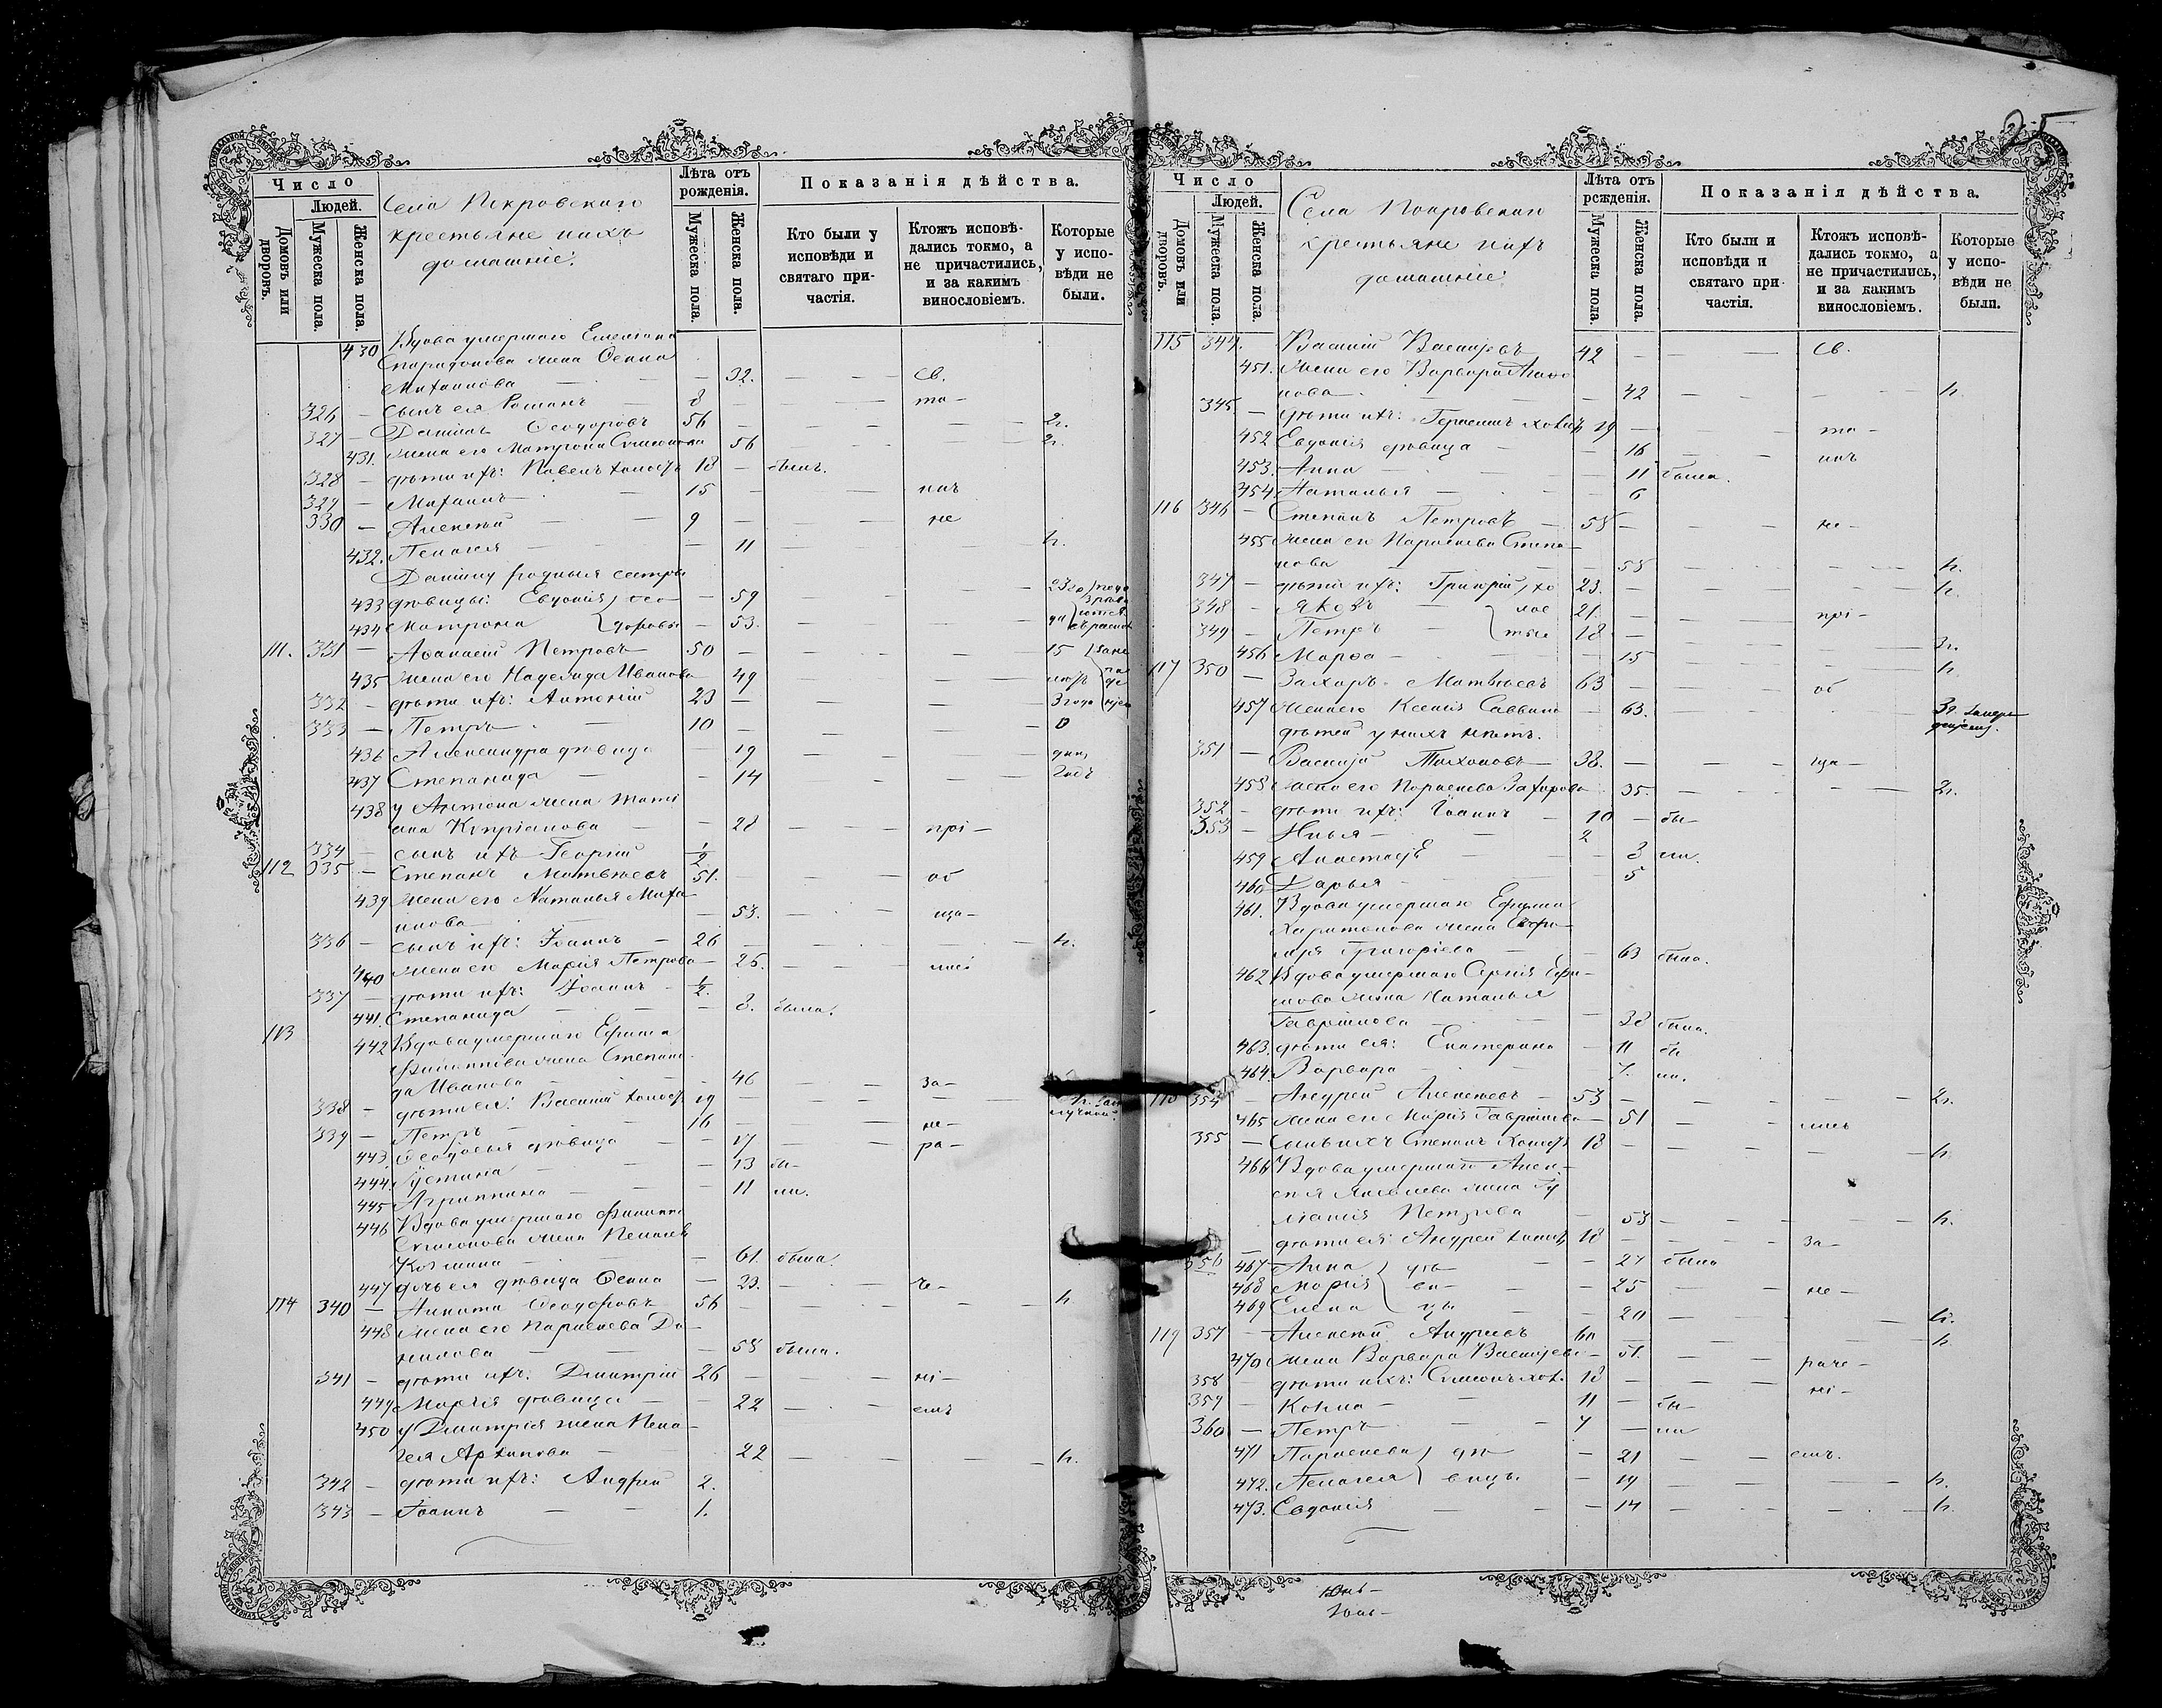 25
Число
Людей.
Домовъ или дворовъ.
Мужеска пола.
Женска пола.
Села Покровскаго
крестьяне и ихъ
домашніе.
Лѣта отъ рожденія.
Мужеска пола.
Женска пола.
Показанія дѣйства.
Кто были у исповѣди и святаго при-частія.
Ктожъ исповѣ-дались токмо, а не причастились, и за какимъ винословіемъ.
Которые у испо-вѣди не были.
430 Вдова умершаго
Спиридонова жена Ѳекла
Михаилова — — 32. — — св.
326 — сынъ ея Романъ — 8 — — то-
327 — Даніилъ Ѳеодоровъ 56 — — — 2г.
431. жена его Матрона Симеонова 56 — — 2г.
328 — дѣти ихъ: Павелъ холостъ 18 — былъ.
329 — Михаилъ — 15 — — нихъ
330 — Алексѣй — 9 — — не
432. Пелагея — — 11 — — г.
Даніилу родныя сестры
433 дѣвицы: Евдокія Ѳео — 59
434 Матрона доровы — 53.
111. 331 — Аѳанасій Петровъ 50 — — — 15
435 жена его Надежда Иванова 49
332 — дѣти ихъ: Антоній 23 — — — 3 года
333 — Петръ — 10 — — —
436 Александра дѣвица — 19
437 Степанида — — 14 — — — годъ
438 у Антона жена Тати
ана Кипріанова — — 28 — — прі-
334 — сынъ ихъ Георгій 1/2
112 335 — Степанъ Матвѣевъ 51. — — об
439 жена его Наталья Миха
илова — — 53. — — ща-
336 — сынъ ихъ: Іоаннъ — 26 — — — г.
440 жена его Марія Петрова — 26. — —
337 — дѣти ихъ: Іоаннъ — 1/2.
441. Степанида — — 3. была.
113 442 Вдова умершаго Ефима
Филиппова жена Степани
да Иванова — — 46 — — за-
338 — дѣти ея: Василій холост. 19 — — —
339 — Петръ — 16 — — не-
443. Ѳеодосья дѣвица — — 17 — — ра-
444. Устина — — 13 бы-
445 Агриппина — — 11 ли.
446 Вдова умершаго Филиппа
Симеонова жена Пелагея
Козмина — — 61. была.
447 дочь ея дѣвица Ѳекла — 23. — — че-
114 340 — Никита Ѳеодоровъ 56 — — — г
448 жена его Параскева Да-
нилова — — 58 была.
341 — дѣти ихъ: Димитрій 26 — — ні-
449 Марѳа дѣвица — — 22 — — емъ
450 у Димитрія жена Пела-
гея Архипова — 22 — — — г.
342 — дѣти ихъ: Андрей 2.
343 — Іоаннъ — 1.
Число
Людей.
Домовъ или дворовъ.
Мужеска пола.
Женска пола.
Села Покровскаго
крестьяне и ихъ
домашніе
Лѣта отъ рожденія.
Мужеска пола.
Женска пола.
Показанія дѣйства.
Кто были и исповѣди и святаго при-частія.
Ктожъ исповѣ-дались токмо, а не причастились, и за какимъ винословіемъ.
Которые у испо-вѣди не были.
115 344. Василій 42 — — св.
451. жена его Варвара Агаѳо
нова — — 42 — — — г.
345 — дѣти ихъ: Герасимъ холост 19 — — то-
452 Евдокія дѣвица — — 16 — — ихъ
453. Анна — — 11 была.
454. Наталья — — 6
116 346 — Степанъ Петровъ — 58 — — не-
455 жена его Параскева Степа-
нова — — 55 — — — г.
347 — дѣти ихъ: Григорій хо 23. — — — г.
348 — Яковъ — лос 21. — — прі-
349 — Петръ — тые 18 — — — 2г.
456 Марѳа — — 15 — — — г.
117 350 — Захаръ Матвѣевъ 63 — — об
457 жена его Ксенія Саввина — 63. — — 3г.
дѣтей у нихъ нѣтъ.
351 — Василій Тихоновъ — 38. — — ща-
458 жена его Параскева Захарова 35. — — 2г.
352 — дѣти ихъ: Іоаннъ — 10 — бы-
353 — Илья — 2
459 Анастасія — — 8 ли.
460 Дарья — — 5
461. Вдова умершаго Ефима
Харитонова жена
Григоріева — 63 была.
462 Вдова умершаго Сергія Ефи-
мова жена Наталья
Гавріилова — — 38 была.
463. дѣти ея: Екатерина — 11 бы
464. Варвара — — 7. ли.
118 354 — Андрей Алексѣевъ — 53 — — — 2г.
465 жена его Марія Гавріилова — 51 — —
355 — сынъ ихъ Степанъ холост 18 — — — г
466 Вдова умершаго Алек-
сѣя Яковлева жена
Петрова — 53 — — — г.
356 дѣти ея: Андрей холост 18 — — за-
467 Анна дѣ — — 27 была
468 Марія ви- — — 25 — — не-
469 Елена цы — — 20 — — — г.
119 357 — Алексѣй Андреевъ 60 — — — г.
470 жена Варвара Васильева — 51. — — раче-
358 — дѣти ихъ: Симеонъ хол. 18 — — ні-
359 — Козма — 11 — бы-
360 — Петръ — 7 — ли
471 Параскева дѣ — 21 — — емъ.
472. Пелагея вицы — 19 — — г.
473. Евдокія — — 14 — — — г.